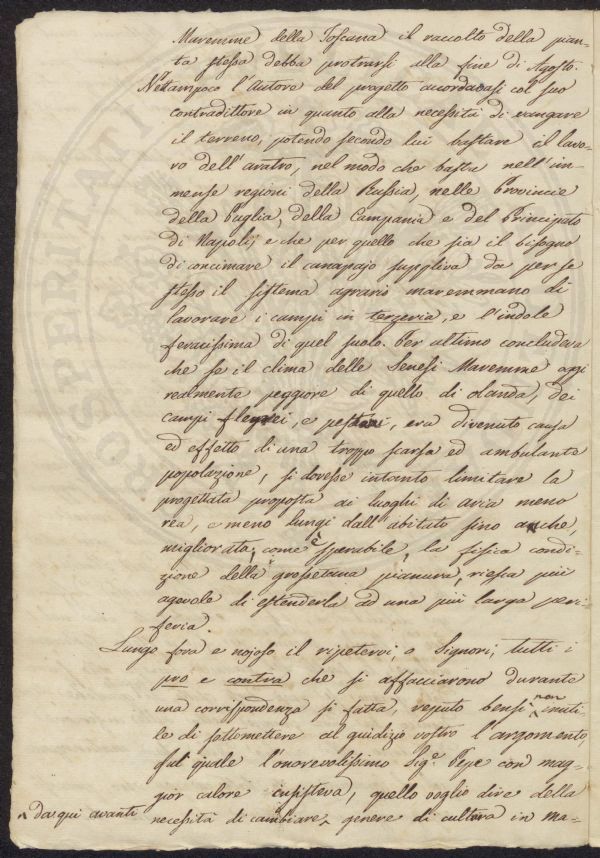 Maremme della Toscana il raccolto della pian-
ta stessa debba protrarsi alla fine di Agosto.
Nètampoco l'Autore del progetto accordavasi col suo
contradittore in quanto alla necessità di vangare
il terreno, potendo secondo lui bastare il lavo-
ro dell'aratro, nel modo che basta nell'im-
mense regioni della Russia, nelle Provincie
della Puglia, della Campania e del Principato
di Napoli; e che per quello che sia il bisogno
di concimare il canapajo suppliva da per se
stesso il sistema agrario maremmano di
lavorare i campi in terzeria, e l'indole
feracissima di quel suolo. Per ultimo concludeva
che se il clima delle Senesi Maremme oggi
realmente peggiore di quello di olanda, dei
campi flegrei, e pestani, era divenuto causa
ed effetto di una troppo scarsa ed ambulante
popolazione, si dovesse intanto limitare la
progettata proposta ai luoghi di aria meno
rea, e meno lungi dall'abitato sino a che,
migliorata, come è sperabile, la fisica condi-
zione della grossetana pianura, riesca più
agevole di estenderla ad una più larga peri-
feria.
Lungo fora e nojoso il ripetervi, o Signori, tutti i
pro e contra che si affacciarono durante
una corrispondenza sì fatta, reputo bensì non inuti-
le di sottomettere al giudizio vostro l'argomento,
sul quale l'onorevolissimo Sigr. Pepe con mag-
gior calore insisteva, quello voglio dire della
necessità di cambiare genere di cultura in Ma-
da qui avanti
PROSPERITATI